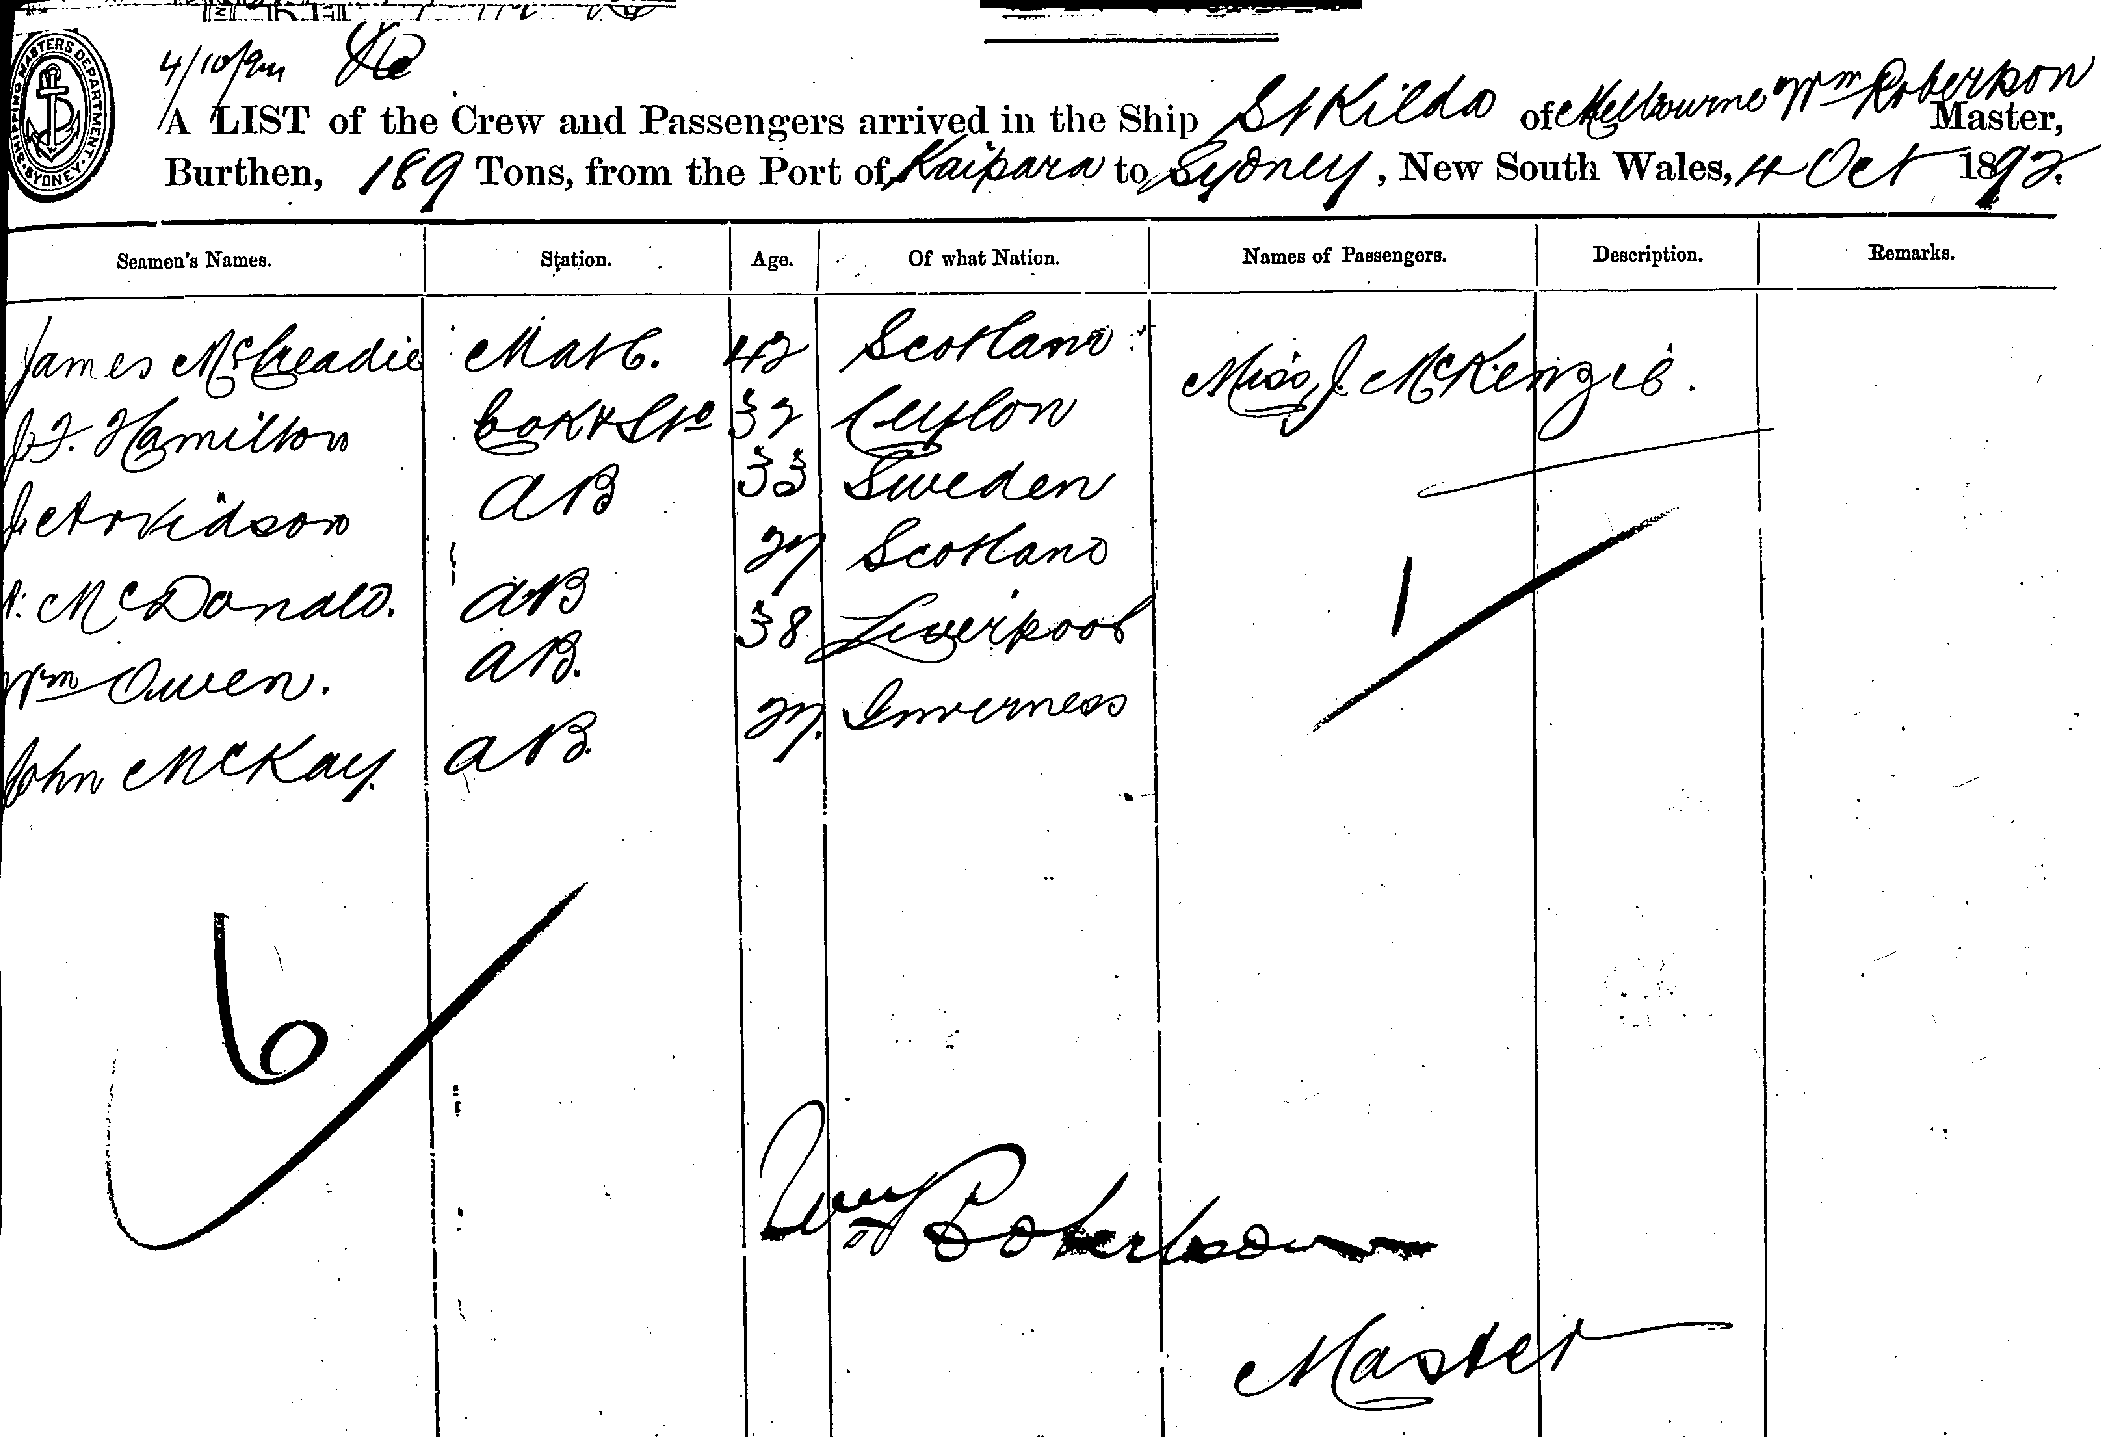 SHIPPING MASTERS DEPARTMENT. SYDNEY
4/10/92
A LIST of the Crew and Passengers arrived in the Ship St Kilda of Melbourne Wm Robertson Master,
Burthen, 189 Tons, from the Port of Kaipara to Sydney, New South Wales, 4 Oct 1892.
Seamen's Names. Station. Age. Of what Nation. Names of Passengers. Description. Remarks.
James McCreadie Mate. 42 Scotland Miss J. McKenzie.
J. F. Hamilton Cook & Std 32 Ceylon
J. Arvidson AB 33 Sweden
McDonald. AB 27 Scotland
Wm Owen. AB. 38 Liverpool
John McKay. AB. 27. Inverness
1
6
Wm Robertson
Master